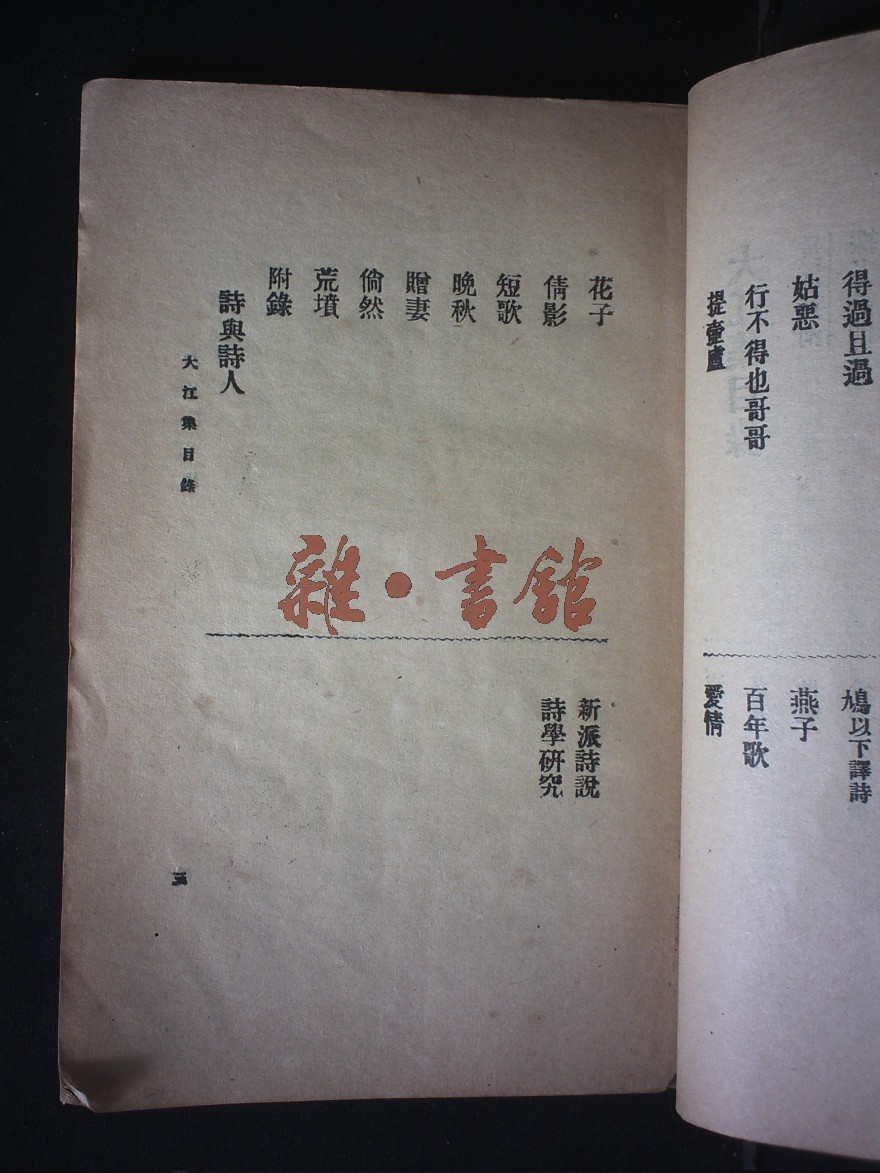 得過且過
姑惡
行不得也哥哥
提壺盧
鳩以下譯詩
燕子
百年歌
愛情
花子
倩影
短歌
晚秋
贈妻
倘然
荒墳
附錄
詩與詩人
新派詩說
詩學研究
大江集目錄
三
雜•書館